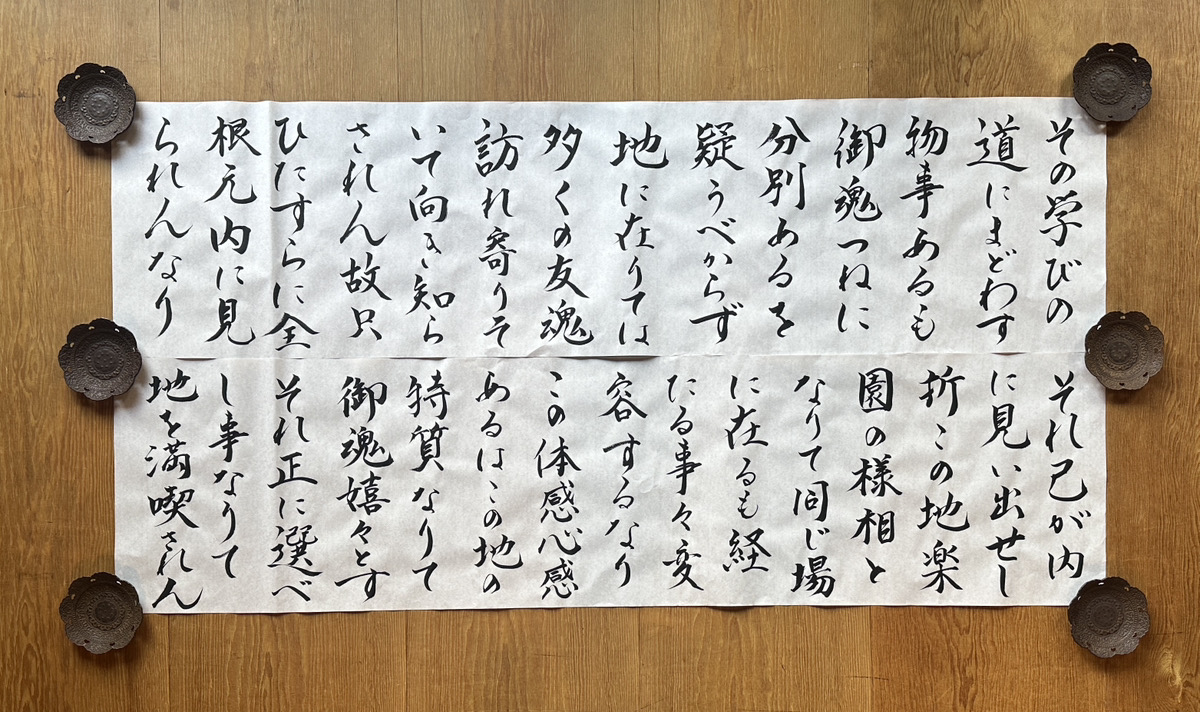 その学びの
道にまどわす
物事あるも
御魂つねに
分別あるを
疑うべからず
地に在りては
多くの友魂
訪れ寄りそ
いて向き知ら
されん故只
ひたすらに全
根元内に見
られんなり
それ己が内
に見い出せし
折この地楽
園の様相と
なりて同じ場
に在るも経
たる事々変
容するなり
この体感心感
あるはこの地の
特質なりて
御魂嬉々とす
それ正に選べ
し事なりて
地を満喫されん